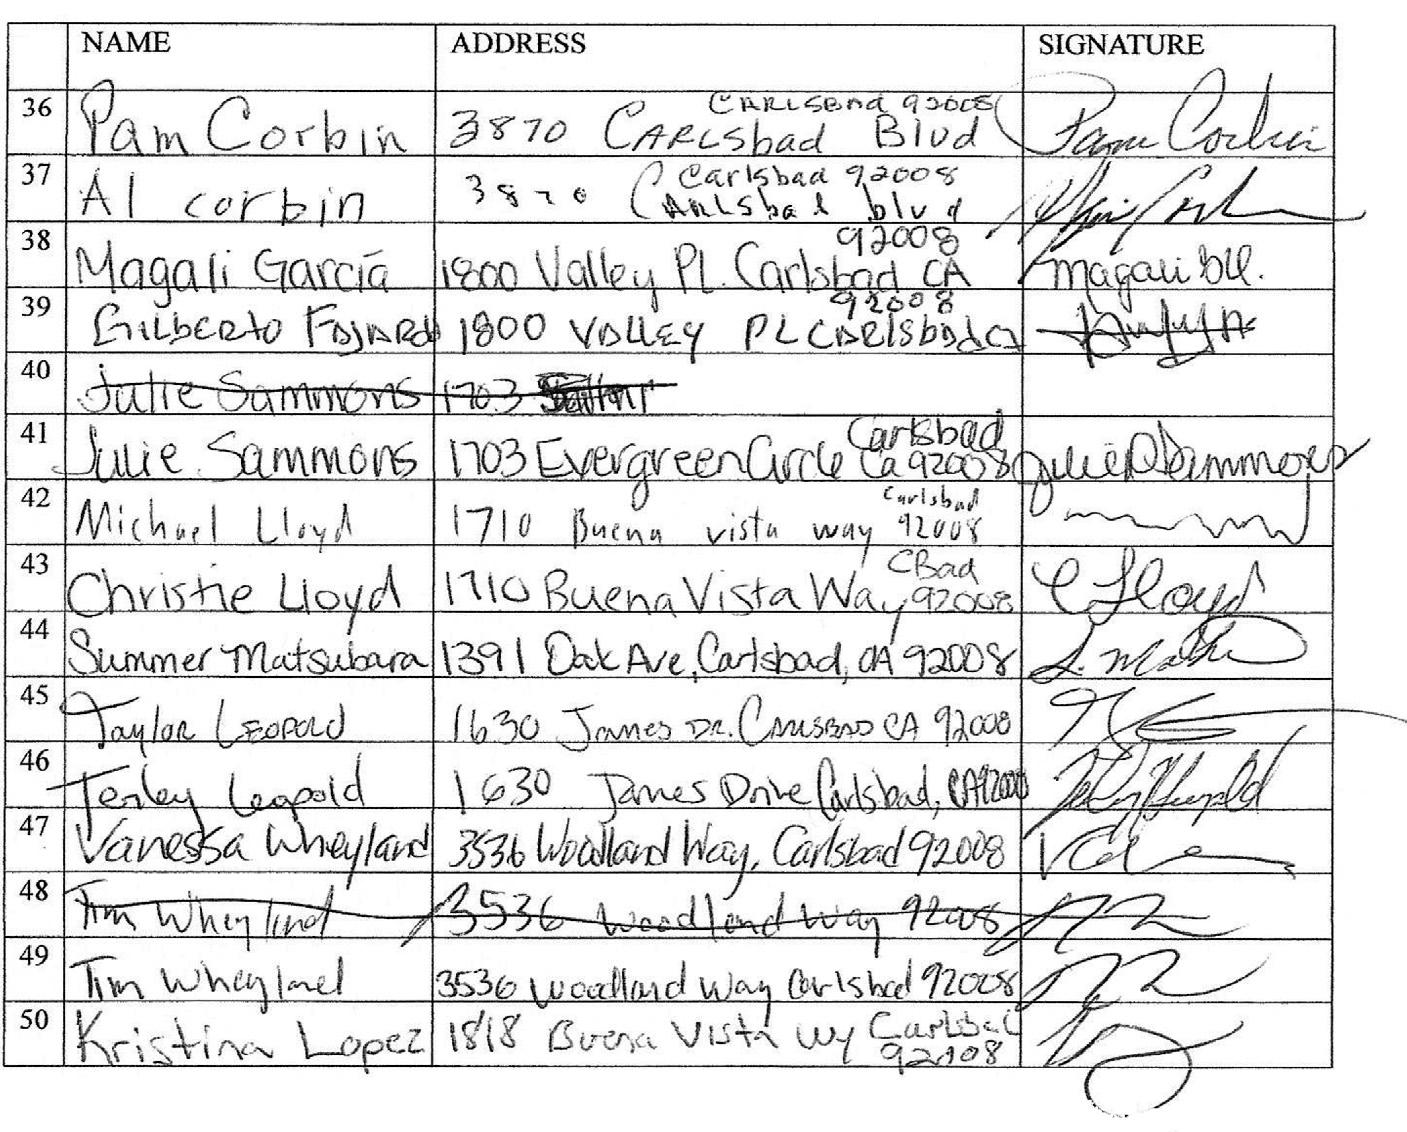 NAME ADDRESS SIGNATURE
36 Pam Corbin 3870 Carlsbad Blvd Carlsbad 92008 Pam Corbin
37 Al corbin 3870 Carlsbad blvd Carlsbad 92008
38 Magali García 1800 Valley Pl. Carlsbad CA 92008 Magali
39 Gilberto Fajardo 1800 Valley PL Carlsbad Ca 92008
40 Julie Sammons 1703
41 Julie Sammons 1703 Evergreen Circle Carlsbad Ca 92008 Julie D Sammons
42 Michael Lloyd 1710 Buena vista way Carlsbad 92008
43 Christie Lloyd 1710 Buena Vista Way CBad 92008 C Lloyd
44 Summer Matsubara 1391 Oak Ave, Carlsbad, CA 92008
45 Taylor Leopold 1630 James Dr. Carlsbad CA 92008
46 Terley Leopold 1630 James Drive Carlsbad, CA 92008
47 Vanessa Wheyland 3536 Woodland Way, Carlsbad 92008
48 Tim Wheyland 3536 Woodland Way 92008
49 Tim Wheyland 3536 Woodland Way Carlsbad 92008
50 Kristina Lopez 1818 Buena Vista Wy Carlsbad 92108